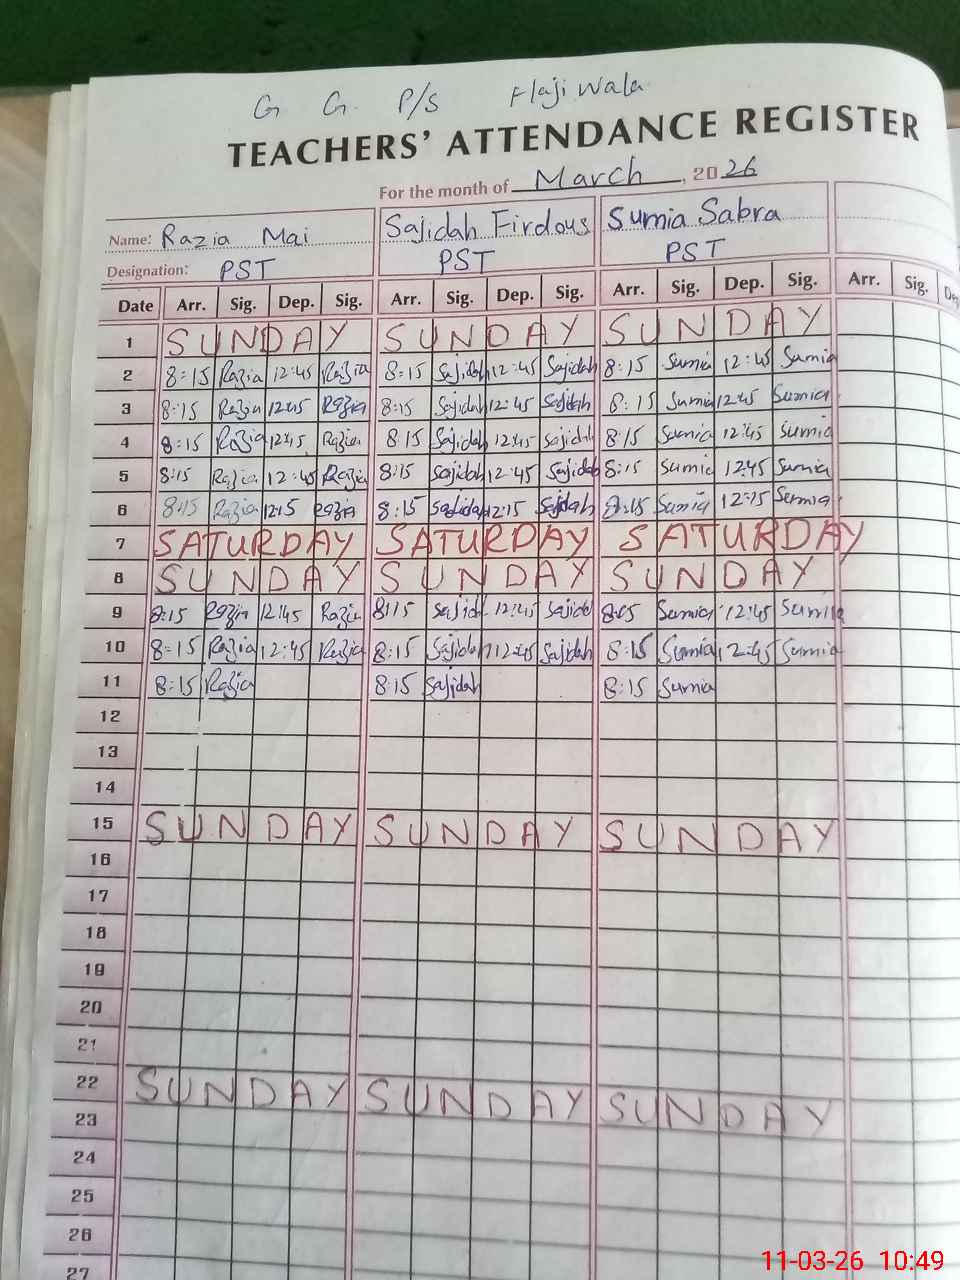 G G. P/S Hajiwala
TEACHERS' ATTENDANCE REGISTER
For the month of March, 2026
Name: Razia Mai Sajidah Firdous Sumia Sabra
Designation: PST PST PST
Date Arr. Sig. Dep. Sig. Arr. Sig. Dep. Sig. Arr. Sig. Dep. Sig. Arr. Sig. Dep
1 SUNDAY SUNDAY SUNDAY
2 8:15 Razia 12:45 Razia 8:15 Sajidah 12:45 Sajidah 8:15 Sumia 12:45 Sumia
3 8:15 Razia 12:45 Razia 8:15 Sajidah 12:45 Sajidah 8:15 Sumia 12:45 Sumia
4 8:15 Razia 12:45 Razia 8:15 Sajidah 12:45 Sajidah 8:15 Sumia 12:45 Sumia
5 8:15 Razia 12:45 Razia 8:15 Sajidah 12:45 Sajidah 8:15 Sumia 12:45 Sumia
6 8:15 Razia 12:15 Razia 8:15 Sajidah 12:15 Sajidah 8:15 Sumia 12:15 Sumia
7 SATURDAY SATURDAY SATURDAY
8 SUNDAY SUNDAY SUNDAY
9 8:15 Razia 12:45 Razia 8:15 Sajid 12:45 Sajida 8:15 Sumia 12:45 Sumia
10 8:15 Razia 12:45 Razia 8:15 Sajidah 12:45 Sajidah 8:15 Sumia 12:45 Sumia
11 8:15 Razia 8:15 Sajidah 8:15 Sumia
12
13
14
15 SUNDAY SUNDAY SUNDAY
16
17
18
19
20
21
22 SUNDAY SUNDAY SUNDAY
23
24
25
26
27
11-03-26 10:49